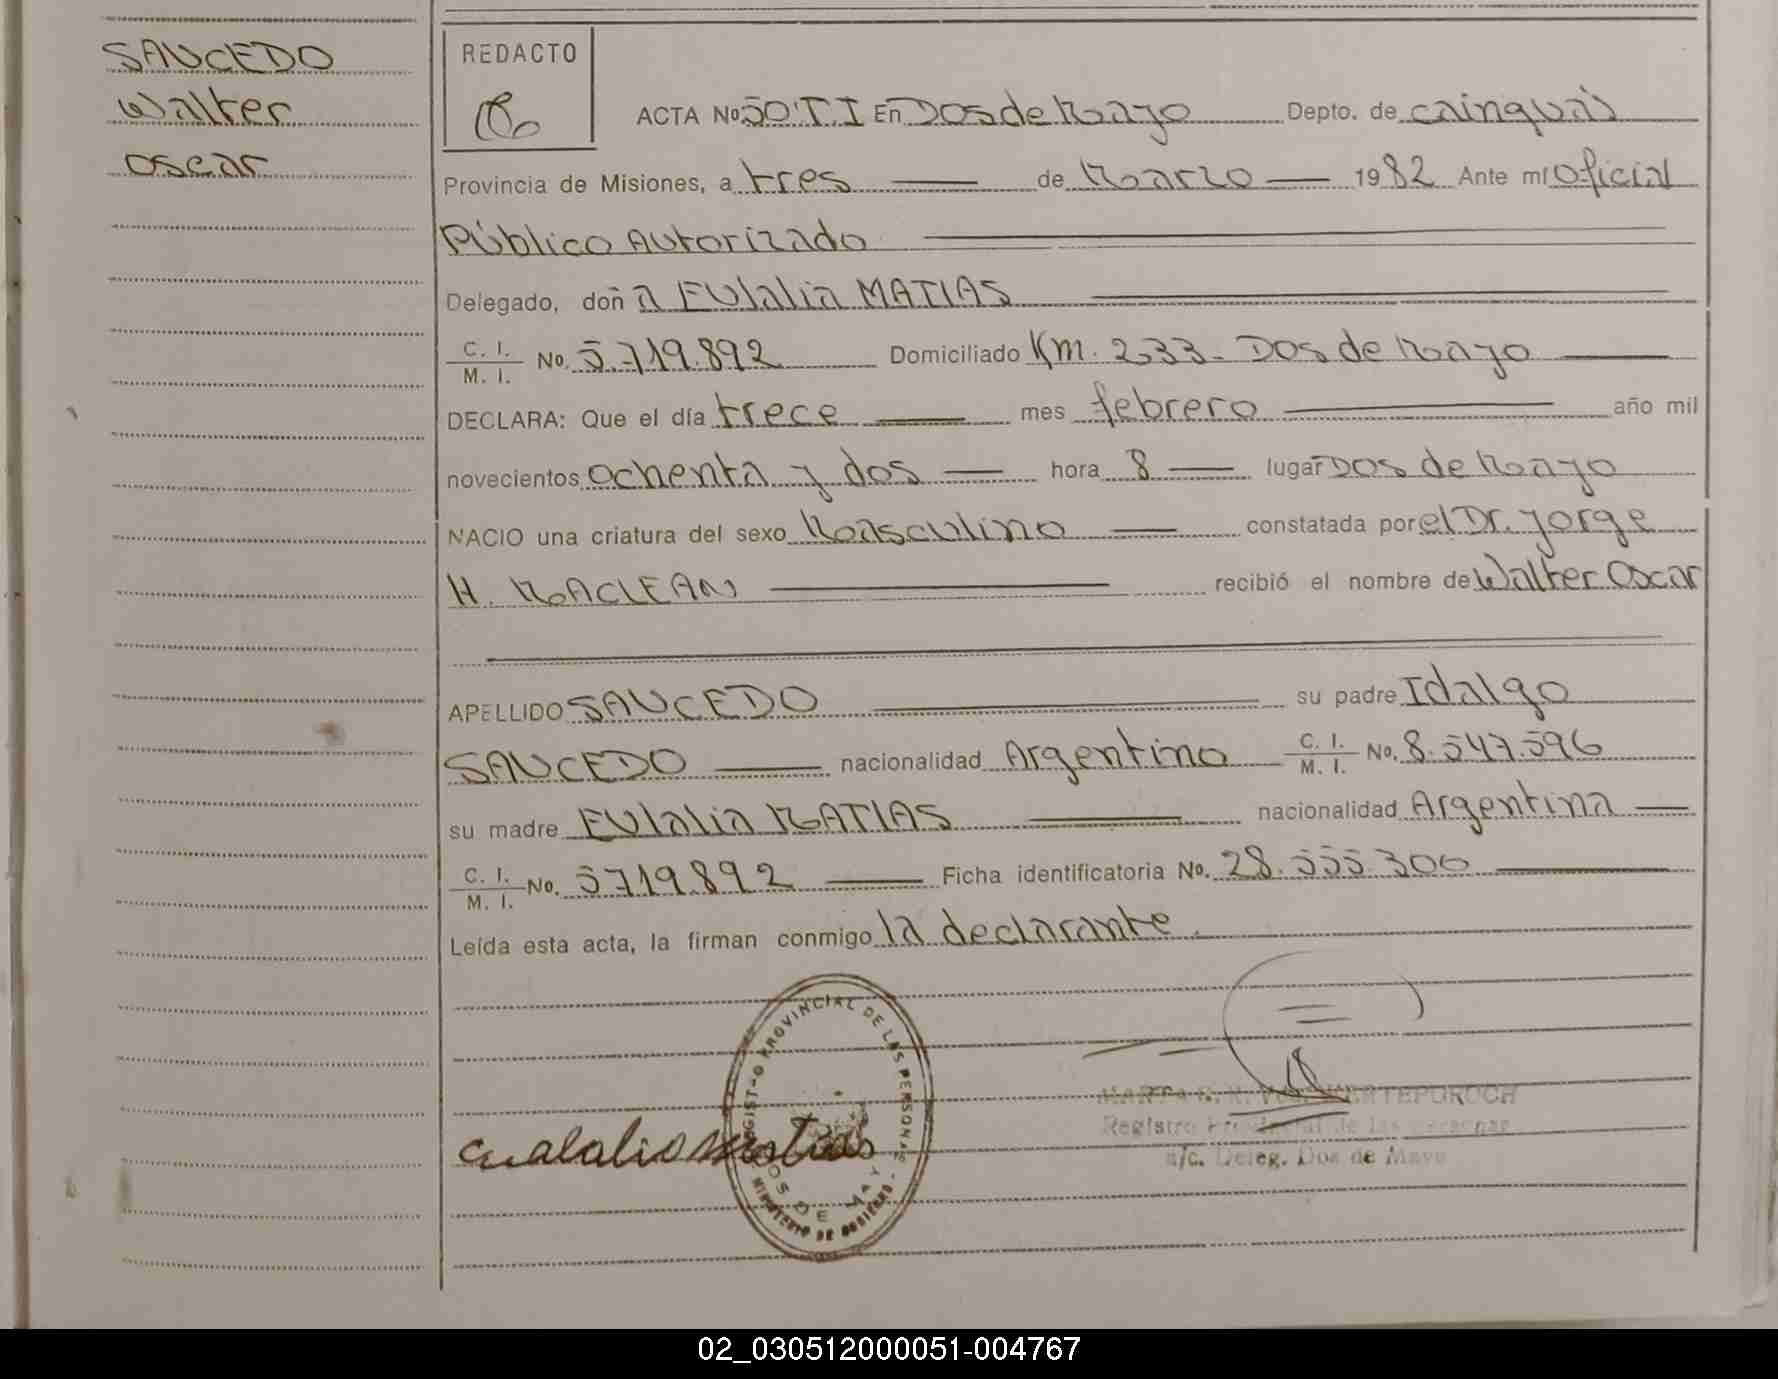 SAUCEDO
Walter
Oscar
REDACTO
ACTA No 50 T I En Dos de Mayo Depto. de Cainguás
Provincia de Misiones, a tres de Marzo 1982 Ante mí Oficial
Público Autorizado
Delegado, doña Eulalia MATIAS
C. I. / M. I. No. 5.719.892 Domiciliado Km. 233 - Dos de Mayo
DECLARA: Que el día trece mes febrero año mil
novecientos ochenta y dos hora 8 lugar Dos de Mayo
NACIO una criatura del sexo Masculino constatada por el Dr. Jorge
H. MACLEAN recibió el nombre de Walter Oscar
APELLIDO SAUCEDO su padre Idalgo
SAUCEDO nacionalidad Argentino C. I. / M. I. No. 8.547.596
su madre Eulalia MATIAS nacionalidad Argentina
C. I. / M. I. No. 5719.892 Ficha identificatoria No. 28.555.306
Leída esta acta, la firman conmigo la declarante.
REGISTRO PROVINCIAL DE LAS PERSONAS
DOS DE MAYO
MINISTERIO DE GOBIERNO
Registro Provincial de las Personas
a/c. Deleg. Dos de Mayo
02_030512000051-004767